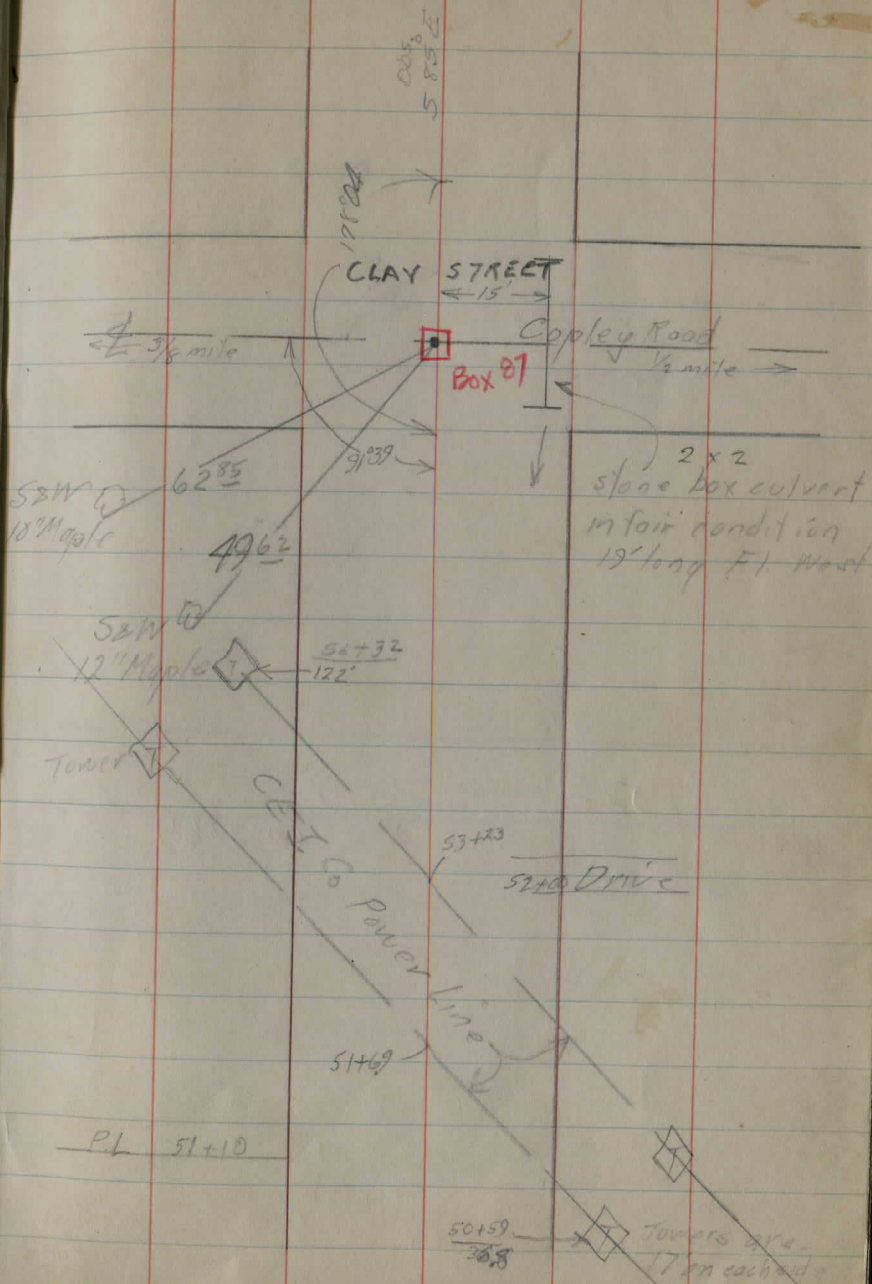 Obs.
S 85 E
178°04
CLAY STREET
15'
Copley Road
3/8 mile
1/2 mile
Box 87
91°39
2 x 2
stone box culvert
in fair condition
19' long Fl. West
62 85
S&W
18" Maple
49 62
S&W
12" Maple
T
56+32
122'
Tower
T
C E I Co Power Line
53+23
52+00 Drive
51+69
P.L 51+10
T
50+59
36.8
T
Towers are
17' on each side